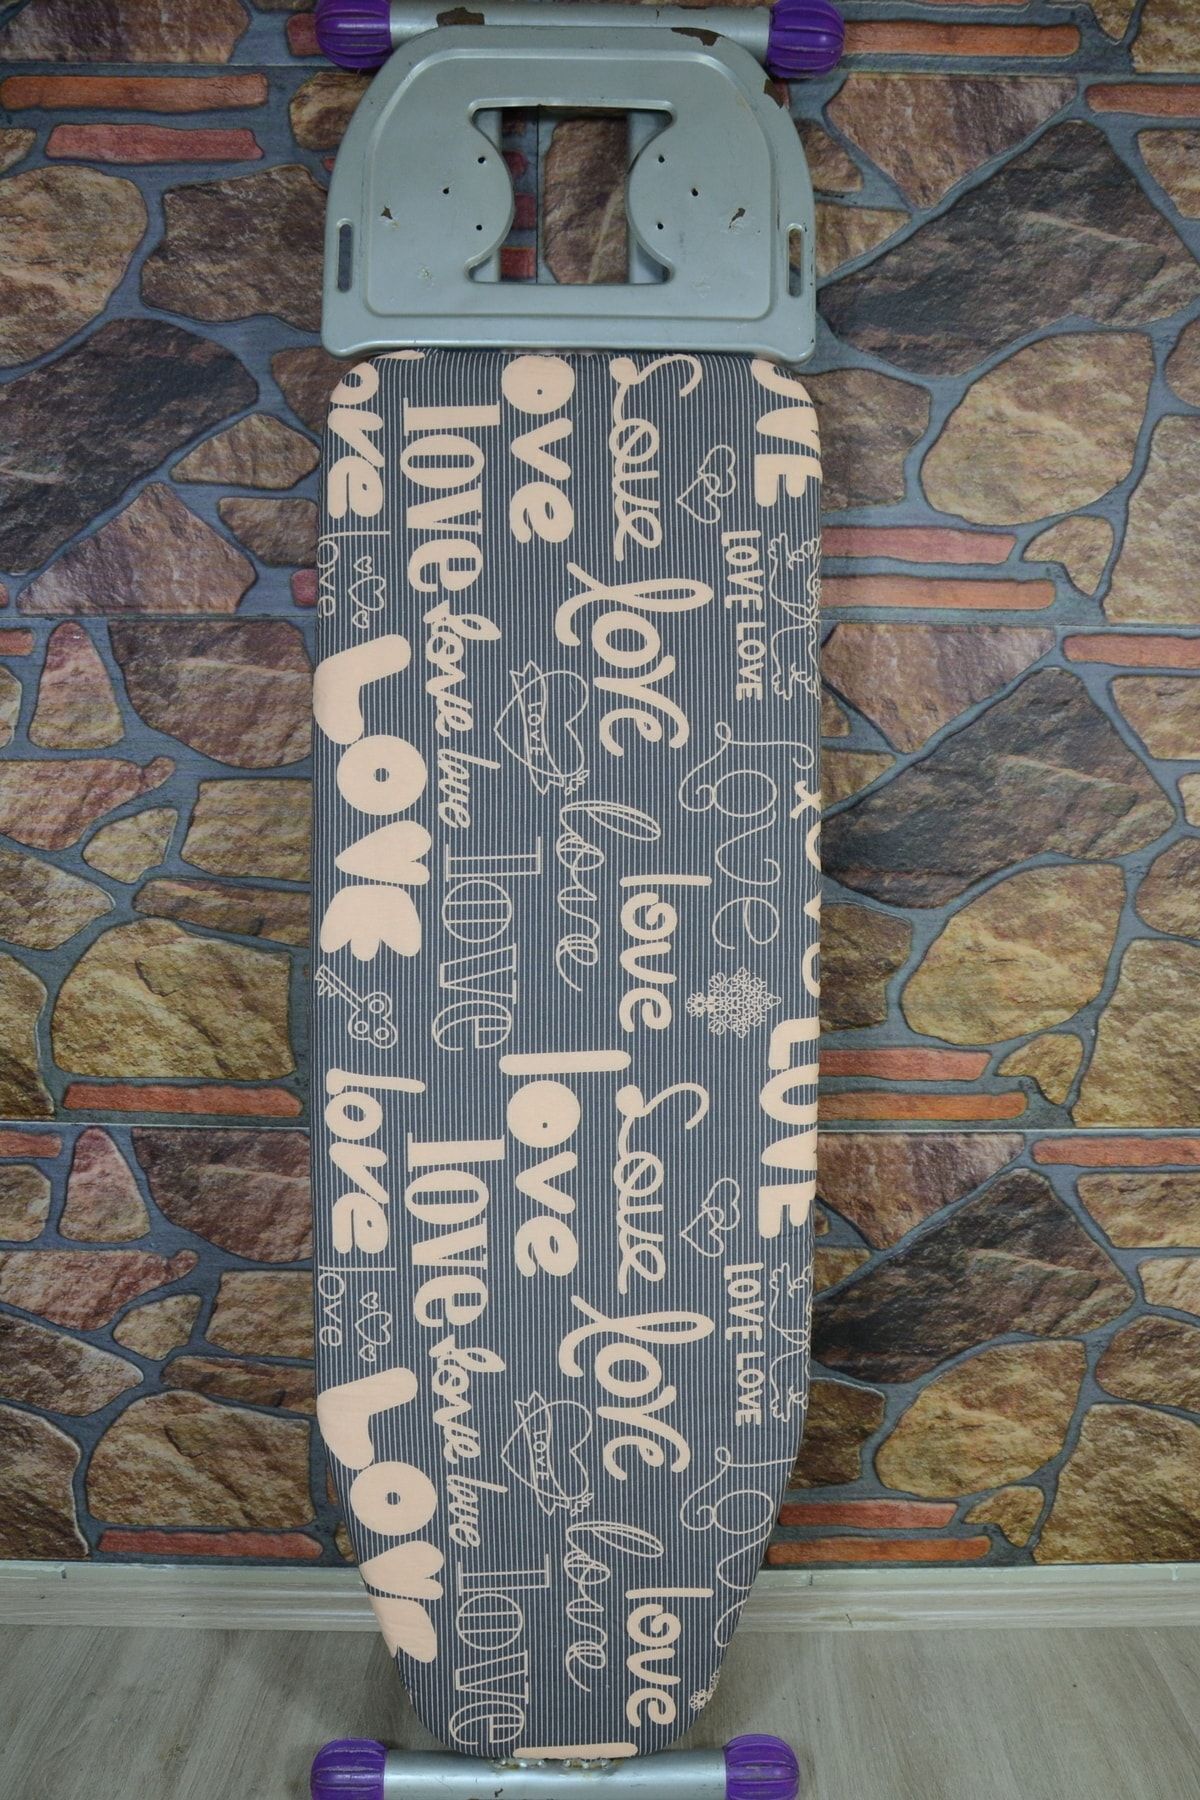 ove
love
LOVE
love
LOVE
love
love
love
love
love
love
love
LOVE
love
love
love
ove
love
love
love
love
love
love
LOVE
love
love
love
love
love
love
OVE
LOVE LOVE
love
LOVE
LOVE LOVE